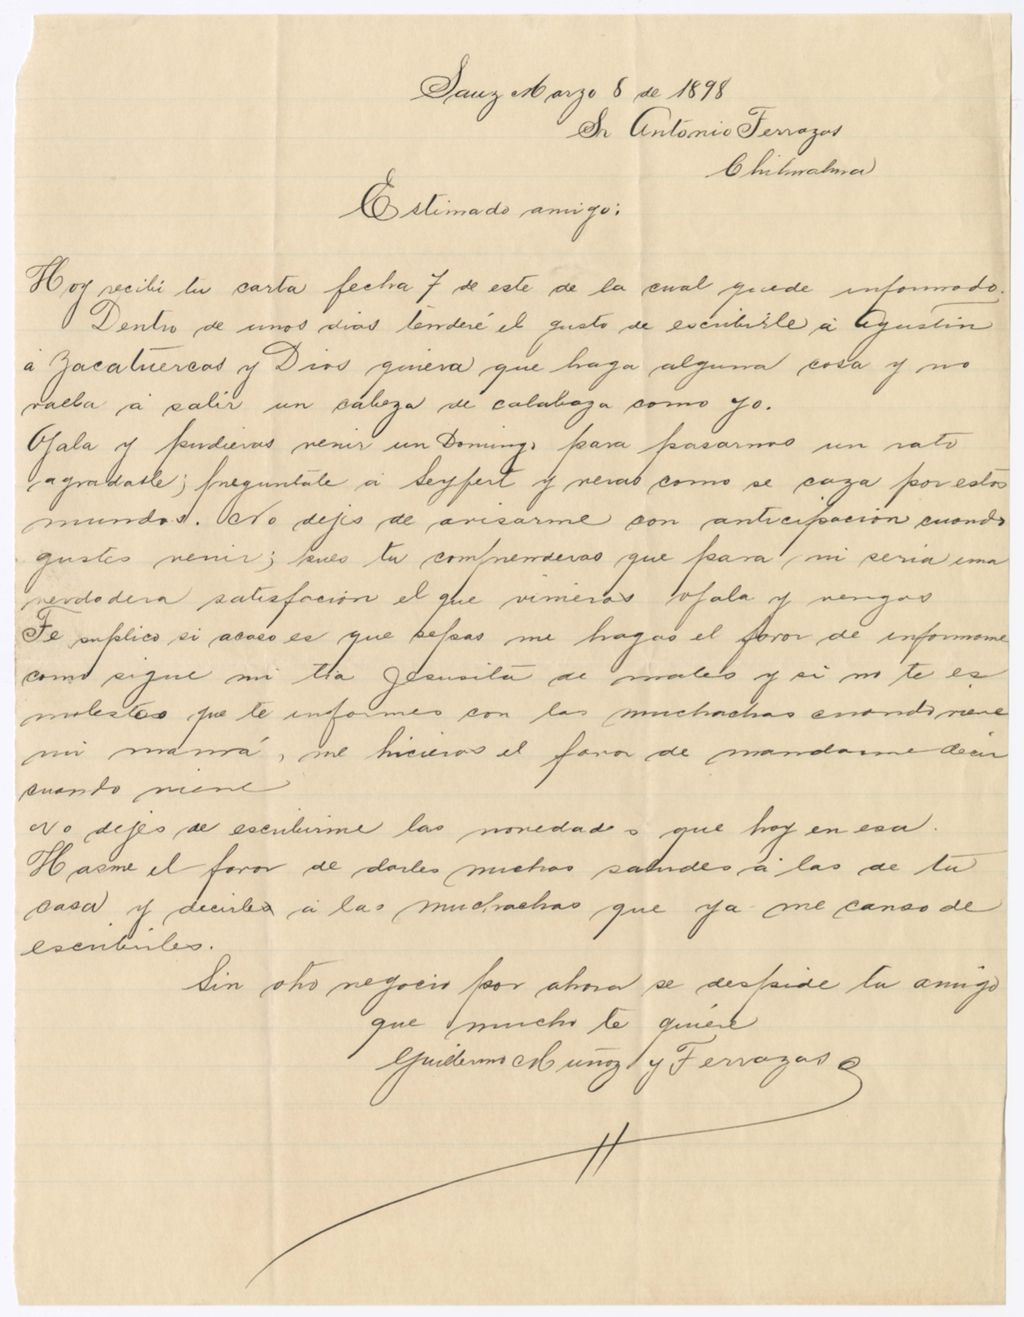 Sauz Marzo 8 de 1898
Sr Antonio Terrazas
Chihuahua
Estimado amigo:
Hoy recibí tu carta fecha 7 de este de la cual quede informado.
Dentro de unos dias tenderé el gusto de escribirle á Agustin
á Zacatuercas y Dios quiera que haga alguna cosa y no
vuelba á salir un cabeza de calabaza como yo.
Ojala y pudieras venir un Domingo para pasarnos un rato
agradable; preguntate á Seyfert y veras como se caza por estos
mundos. No dejes de avisarme con anticipacion cuando
gustes venir; pues tu comprenderas que para mi seria una
verdadera satisfacion el que vinieras ojala y vengas
Te suplico si acaso es que sepas me hagas el favor de informarme
como sigue mi tia Jesusita de males y si no te es
molesto que te informes con las muchachas cuando viene
mi mamá, me hicieras el favor de mandarme decir
cuando viene
No dejes de escribirme las novedades que hay en esa.
Hasme el favor de darles muchos saludes á las de tu
casa y decirles á las muchachas que ya me canso de
escribirles.
Sin otro negocio por ahora se despide tu amigo
que mucho te quiere
Guillermo Muñoz y Terrazas